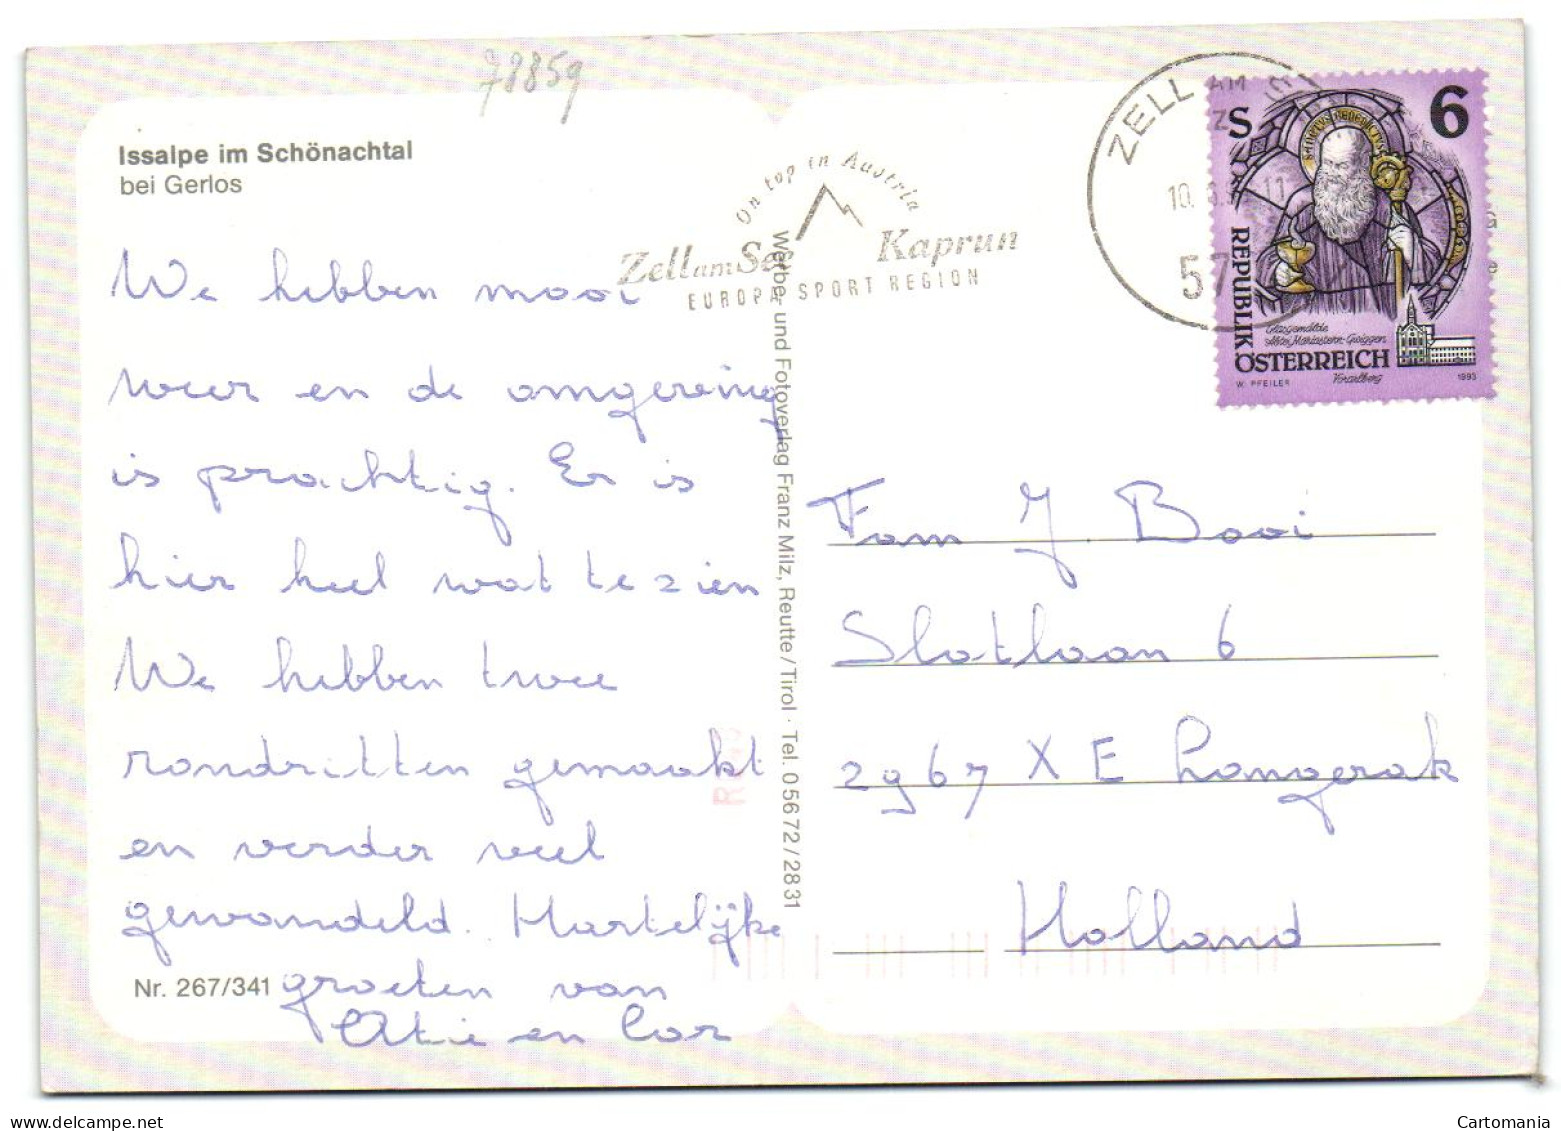 78859
Issalpe im Schönachtal
bei Gerlos
On top in Austria
Zell am See Kaprun
EUROPA SPORT REGION
ZELL AM
10. 11
57
S 6
SANCTUS BENEDICTUS
REPUBLIK
ÖSTERREICH
Glasgemälde
Abtei Mariastern-Gwiggen
Vorarlberg
W. PFEILER
1993
We hebben mooi
weer en de omgeving
is prachtig. Er is
hier heel wat te zien
We hebben twee
rondritten gemaakt
en verder veel
gewandeld. Hartelijke
groeten van
Atie en Cor
Nr. 267/341
Werbe- und Fotoverlag Franz Milz, Reutte/Tirol · Tel. 0 56 72 / 28 31
Fam J. Booi
Slotlaan 6
2967 XE Langerak
Holland
Cartomania
www.delcampe.net